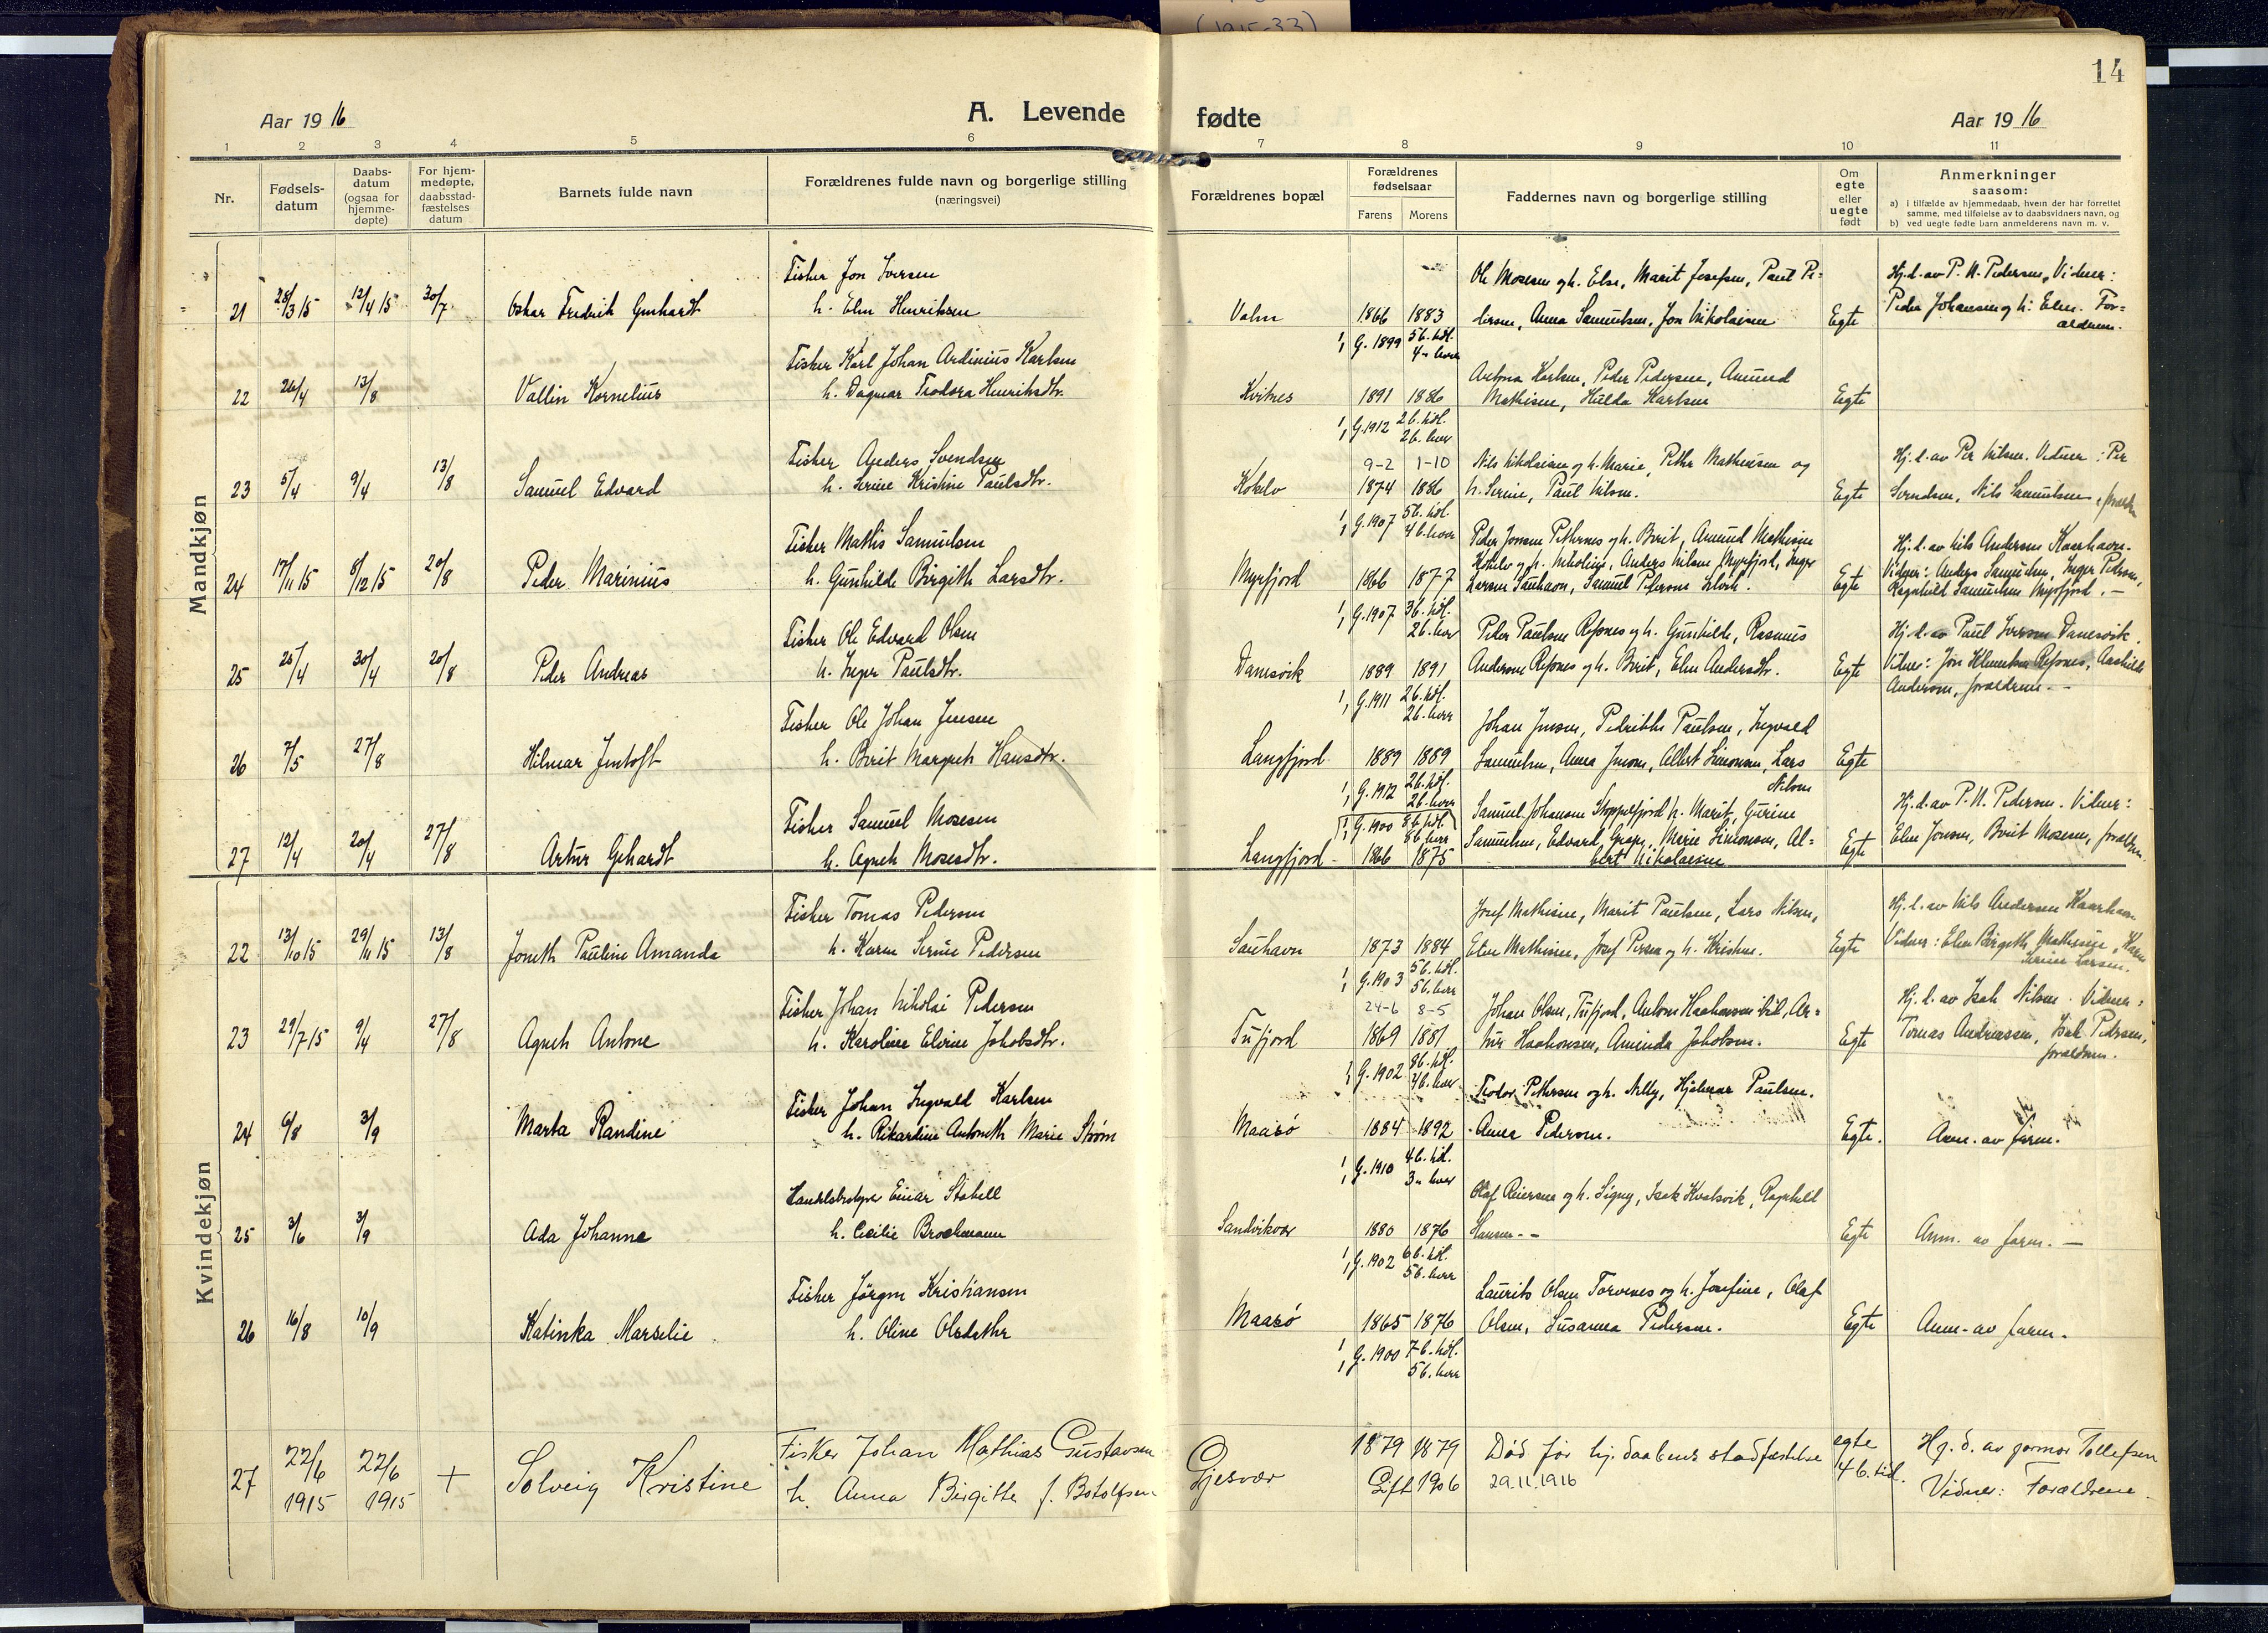 (1915-33)
14
Aar 1916
A. Levende
fødte
Aar 1916
1 2 3 4 5 6 7 8 9 10 11
Nr.
Fødsels-
datum
Daabs-
datum
(ogsaa for
hjemme-
døpte)
For hjem-
medøpte,
daabsstad-
fæstelses
datum
Barnets fulde navn
Forældrenes fulde navn og borgerlige stilling
(næringsvei)
Forældrenes bopæl
Forældrenes
fødselsaar
Farens Morens
Faddernes navn og borgerlige stilling
Om
egte
eller
uegte
født
Anmerkninger
saasom:
a) i tilfælde av hjemmedaab, hvem der har forrettet
samme, med tilføielse av to daabsvidners navn, og
b) ved uegte fødte barn anmelderens navn m. v.
Mandkjøn
Fisker Jon Iversen
Ole Mosesen og h. Elen, Marit Josefsen, Paul Pe=
Hj.d. av P. N. Pedersen, Vidner:
21 28/3 15 12/4 15 30/7 Oskar Fredrik Gunhardt
h. Elen Henriksen
Valen 1866 1883
dersen, Anna Samuelsen, Jon Nikolaisen
Egte
Peder Johansen og h. Elen. For=
ældrene.
G. 1899 5 b. hdl.
4 " herr
Fisker Karl Johan Ardinius Karlsen
22 24/4 13/8 Vallin Kornelius
h. Dagmar Teodora Henriksdtr.
Kvitnes 1891 1886
Antona Karlsen, Peder Pedersen, Amund
Mathisen, Hulda Karlsen
Egte
G. 1912 2 b. hdl.
2 b. herr
9-2 1-10
Fisker Anders Svendsen
23 5/4 9/4 13/8 Samuel Edvard
h. Serine Kristine Paulsdtr.
Kokelv 1874 1886
Nils Nikolaisen og h. Marie, Petter Mathisen og
h. Serine, Paul Nilsen.
Egte
Hj.d. av Per Nilsen. Vidner: Per
Svendsen, Nils Samuelsen,
G. 1907 5 b. hdl.
4 b. herr
Fisker Mathis Samuelsen
24 17/11 15 8/12 15 20/8 Peder Marinius
h. Gunhilde Birgith Larsdtr.
Myrfjord 1866 1877
Peder Jonsen og h. Berit, Amund Mathisen
Kokelv og h. Nikoline, Anders Nilsen Myrfjord, Inger
Larsen Sauhavn, Samuel Pedersen
Egte
Hj.d. av Nils Andersen Kaarhavn.
Vidner: Anders Samuelsen, Inger Pedersen,
Ragnhild Samuelsen Myrfjord. –
G. 1907 3 b. hdl.
2 b. herr
Fisker Ole Edvard Olsen
25 25/4 30/4 20/8 Peder Andreas
h. Inger Paulsdtr.
Danesvik 1889 1891
Peder Paulsen Refsnes og h. Gunhilde, Rasmus
Andersen Refsnes og h. Berit, Elen Andersdtr.
Egte
Hj.d. av Paul Iversen Danesvik.
Vidner: Jon Klemetsen Refsnes, Aashild
Andersen, forældrene. –
G. 1911 2 b. hdl.
2 b. herr
Fisker Ole Johan Jensen
26 7/5 27/8 Hilmar Jentoft
h. Berit Margrete Hansdtr.
Langfjord 1889 1889
Johan Jensen, Pedrikke Paulsen, Ingvald
Samuelsen, Anna Jensen, Albert Simonsen, Lars
Nilsen
Egte
G. 1912 2 b. hdl.
2 b. herr
G. 1900 8 b. hdl.
8 b. herr
Fisker Samuel Mosesen
27 12/4 20/4 27/8 Artur Gehardt
h. Agneth Mosesdtr.
Langfjord 1866 1875
Samuel Johansen h. Marit, Gurine
Samuelsen, Edvard, Marie Simonsen, Al=
bert Nikolaisen
Egte
Hj.d. av P. N. Pedersen. Vidner:
Elen Jonsen, Berit Mosesen, forældrene
Kvindekjøn
Fisker Tomas Pedersen
22 13/10 15 29/11 15 13/8 Joneth Pauline Amanda
h. Karen Serine Pedersen
Sauhavn 1873 1884
Josef Mathisen, Marit Paulsen, Lars Nilsen,
Elen Mathisen, Josef Persen og h. Kristine.
Egte
Hj.d. av Nils Andersen Kaarhavn
Vidner: Elen Birgeth Mathisen, Karen
Serine Larsen.
G. 1903 5 b. hdl.
5 b. herr
24-6 8-5
Fisker Johan Nikolai Pedersen
23 29/7 15 9/4 27/8 Agneth Antone
h. Karoline Elvine Jakobsdtr.
Tufjord 1869 1881
Johan Olsen, Tufjord, Antone Haakonsen, Ar=
tur Haakonsen, Aminda Jakobsen.
Egte
Hj.d. av Isak Nilsen. Vidner:
Tomas Andreassen, Isak Pedersen,
forældrene.
G. 1902 8 b. hdl.
4 b. herr
Fisker Johan Ingvald Karlsen
24 6/8 3/9 Marta Randine
h. Rikardine Antoneth Marie Strøm
Maasø 1884 1892
Teodor Pettersen og h. Nelly, Hjalmar Paulsen.
Anna Pedersen.
Egte.
Anm. av farm.
G. 1910 4 b. hdl.
3 " herr
Handelsbestyrer Einar Stabell
25 3/6 3/9 Ada Johanne
h. Cecilie Brochmann
Sandvikvær 1880 1876
Olaf Reiersen og h. Signy, Isak Kvalsvik, Ragnhild
Hansen. –
Egte
Anm. av farm. –
G. 1902 6 b. hdl.
5 b. herr
Fisker Jørgen Kristiansen
26 16/8 10/9 Katinka Marselie
h. Oline Olsdatter
Maasø 1865 1876
Laurits Olsen Torvenes og h. Josefine, Olaf
Olsen, Susanna Pedersen.
Egte
Anm. av farm.
G. 1900 7 b. hdl.
5 b. herr
Fisker Johan Mathias Gustavsen
27 22/6 1915 22/6 1915 + Solveig Kristine
h. Anna Birgitte f. Botolfsen
Gjesvær 1879 1879
Gift 1906
Død før hj. daabens stadfæstelse
29.11.1916
egte
4 b. hdl.
Hj. d. av jormor Tollefsen
Vidner: Forældrene.